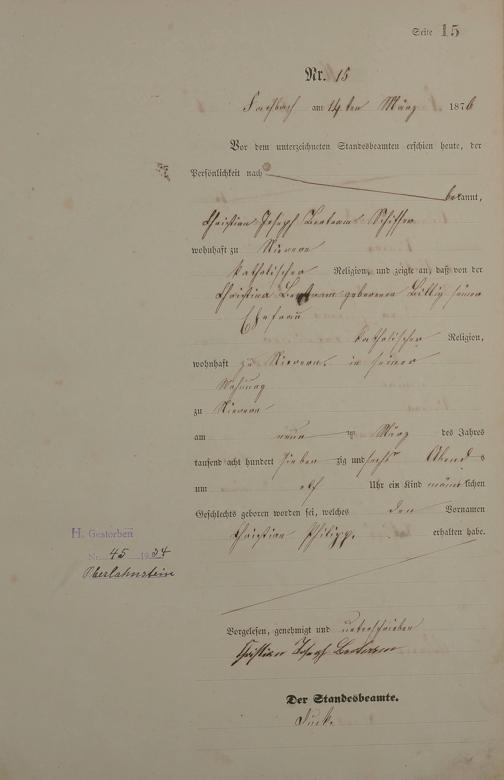 Seite 15
Nr. 15
Fachbach am 14ten März 1876
Vor dem unterzeichneten Standesbeamten erschien heute, der
Persönlichkeit nach
bekannt,
Christian Joseph Bertram Schiffer
wohnhaft zu Nievern
katholischer Religion, und zeigte an, daß von der
Christina Bertram geborenen Billig seiner
Ehefrau
katholischer Religion,
wohnhaft zu Nievern in seiner
Wohnung
zu Nievern
am neun ten März des Jahres
tausend acht hundert sieben zig und sechs Abends
um elf Uhr ein Kind männlichen
Geschlechts geboren worden sei, welches den Vornamen
Christian Philipp erhalten habe.
H. Gestorben
Nr. 45 1934
Oberlahnstein
Vorgelesen, genehmigt und unterschrieben
Christian Joseph Bertram
Der Standesbeamte.